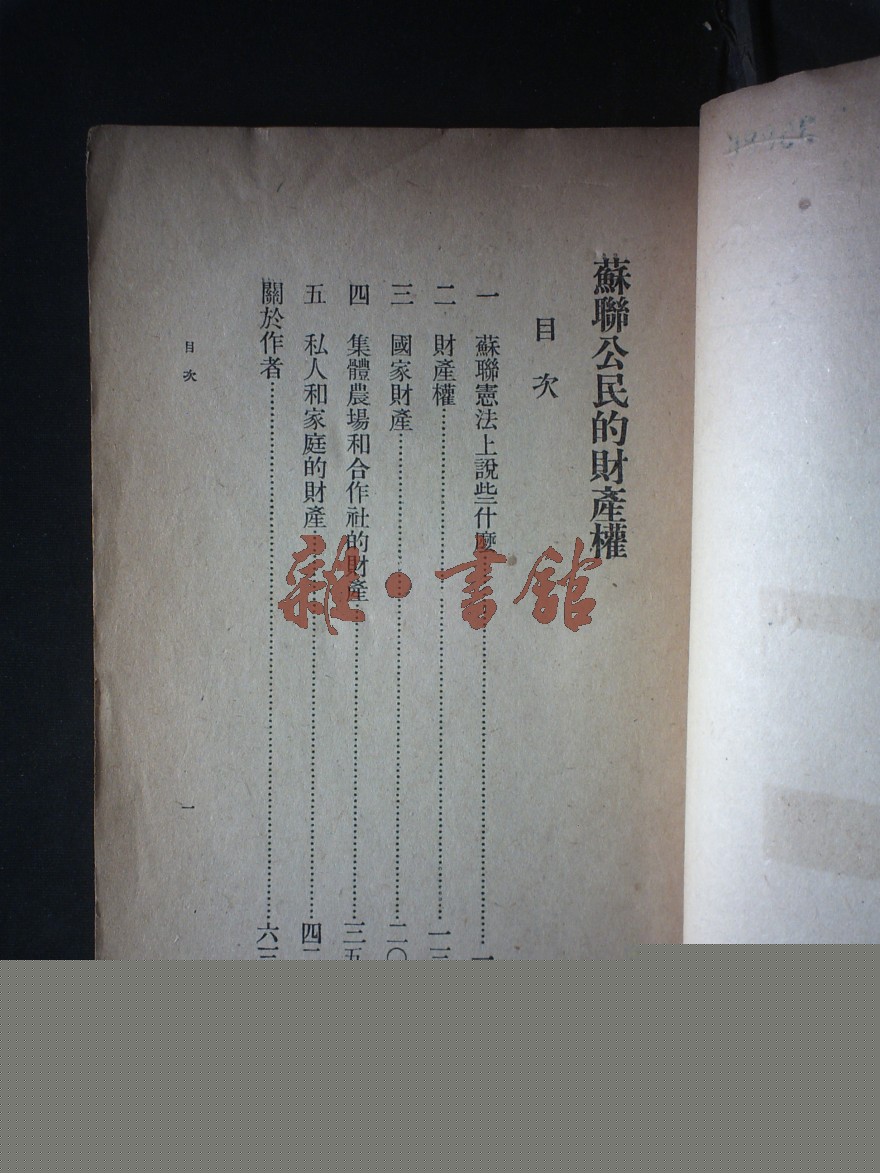 蘇聯公民的財產權
目次
一 蘇聯憲法上說些什麼…………一
二 財產權…………一
三 國家財產…………二〇
四 集體農場和合作社的財產…………三五
五 私人和家庭的財產…………四
關於作者…………六
目次
一
雜·書館